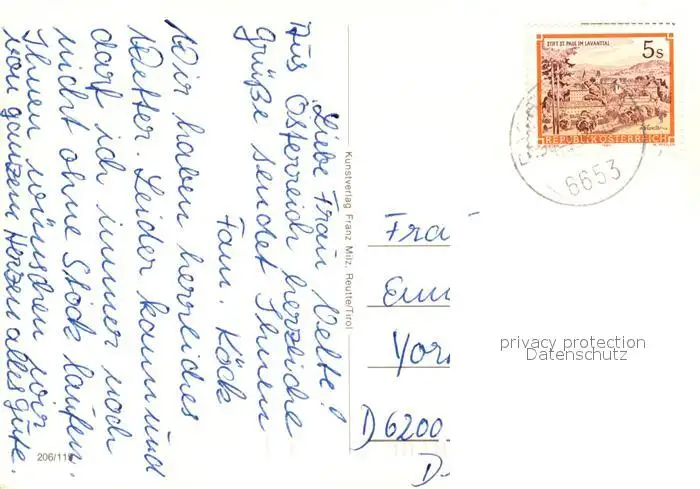 Liebe Frau Velte!
Aus Österreich herzliche
Grüße sendet Ihnen
Fam. Köck
Wir haben herrliches
Wetter. Leider kann und
darf ich immer noch
nicht ohne Stock laufen.
Ihnen wünschen wir
von ganzem Herzen alles Gute.
206/11
Kunstverlag Franz Milz, Reutte/Tirol
STIFT ST. PAUL IM LAVANTTAL
5 s
REPUBLIK ÖSTERREICH
6653
Fra
D 6200
D-
privacy protection
Datenschutz